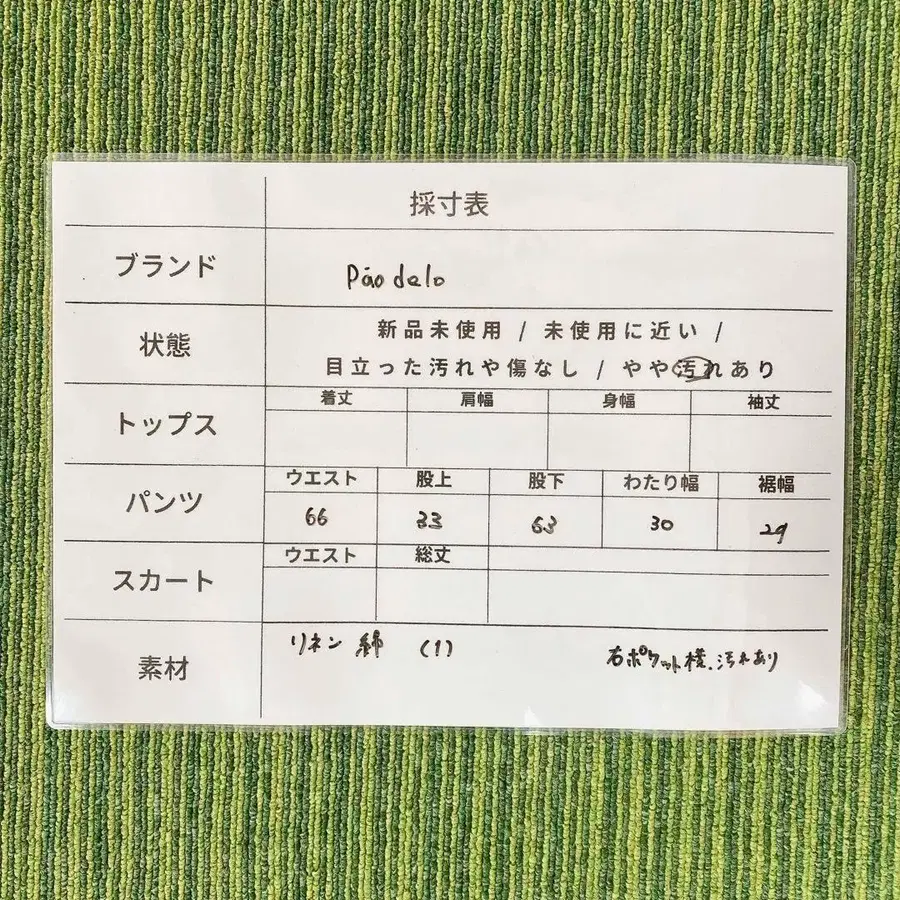 採寸表
ブランド Pāo de lo
状態 新品未使用 / 未使用に近い /
目立った汚れや傷なし / やや汚れあり
トップス 着丈 肩幅 身幅 袖丈
パンツ ウエスト 股上 股下 わたり幅 裾幅
66 33 63 30 29
スカート ウエスト 総丈
素材 リネン 綿 (1) 右ポケット横、汚れあり